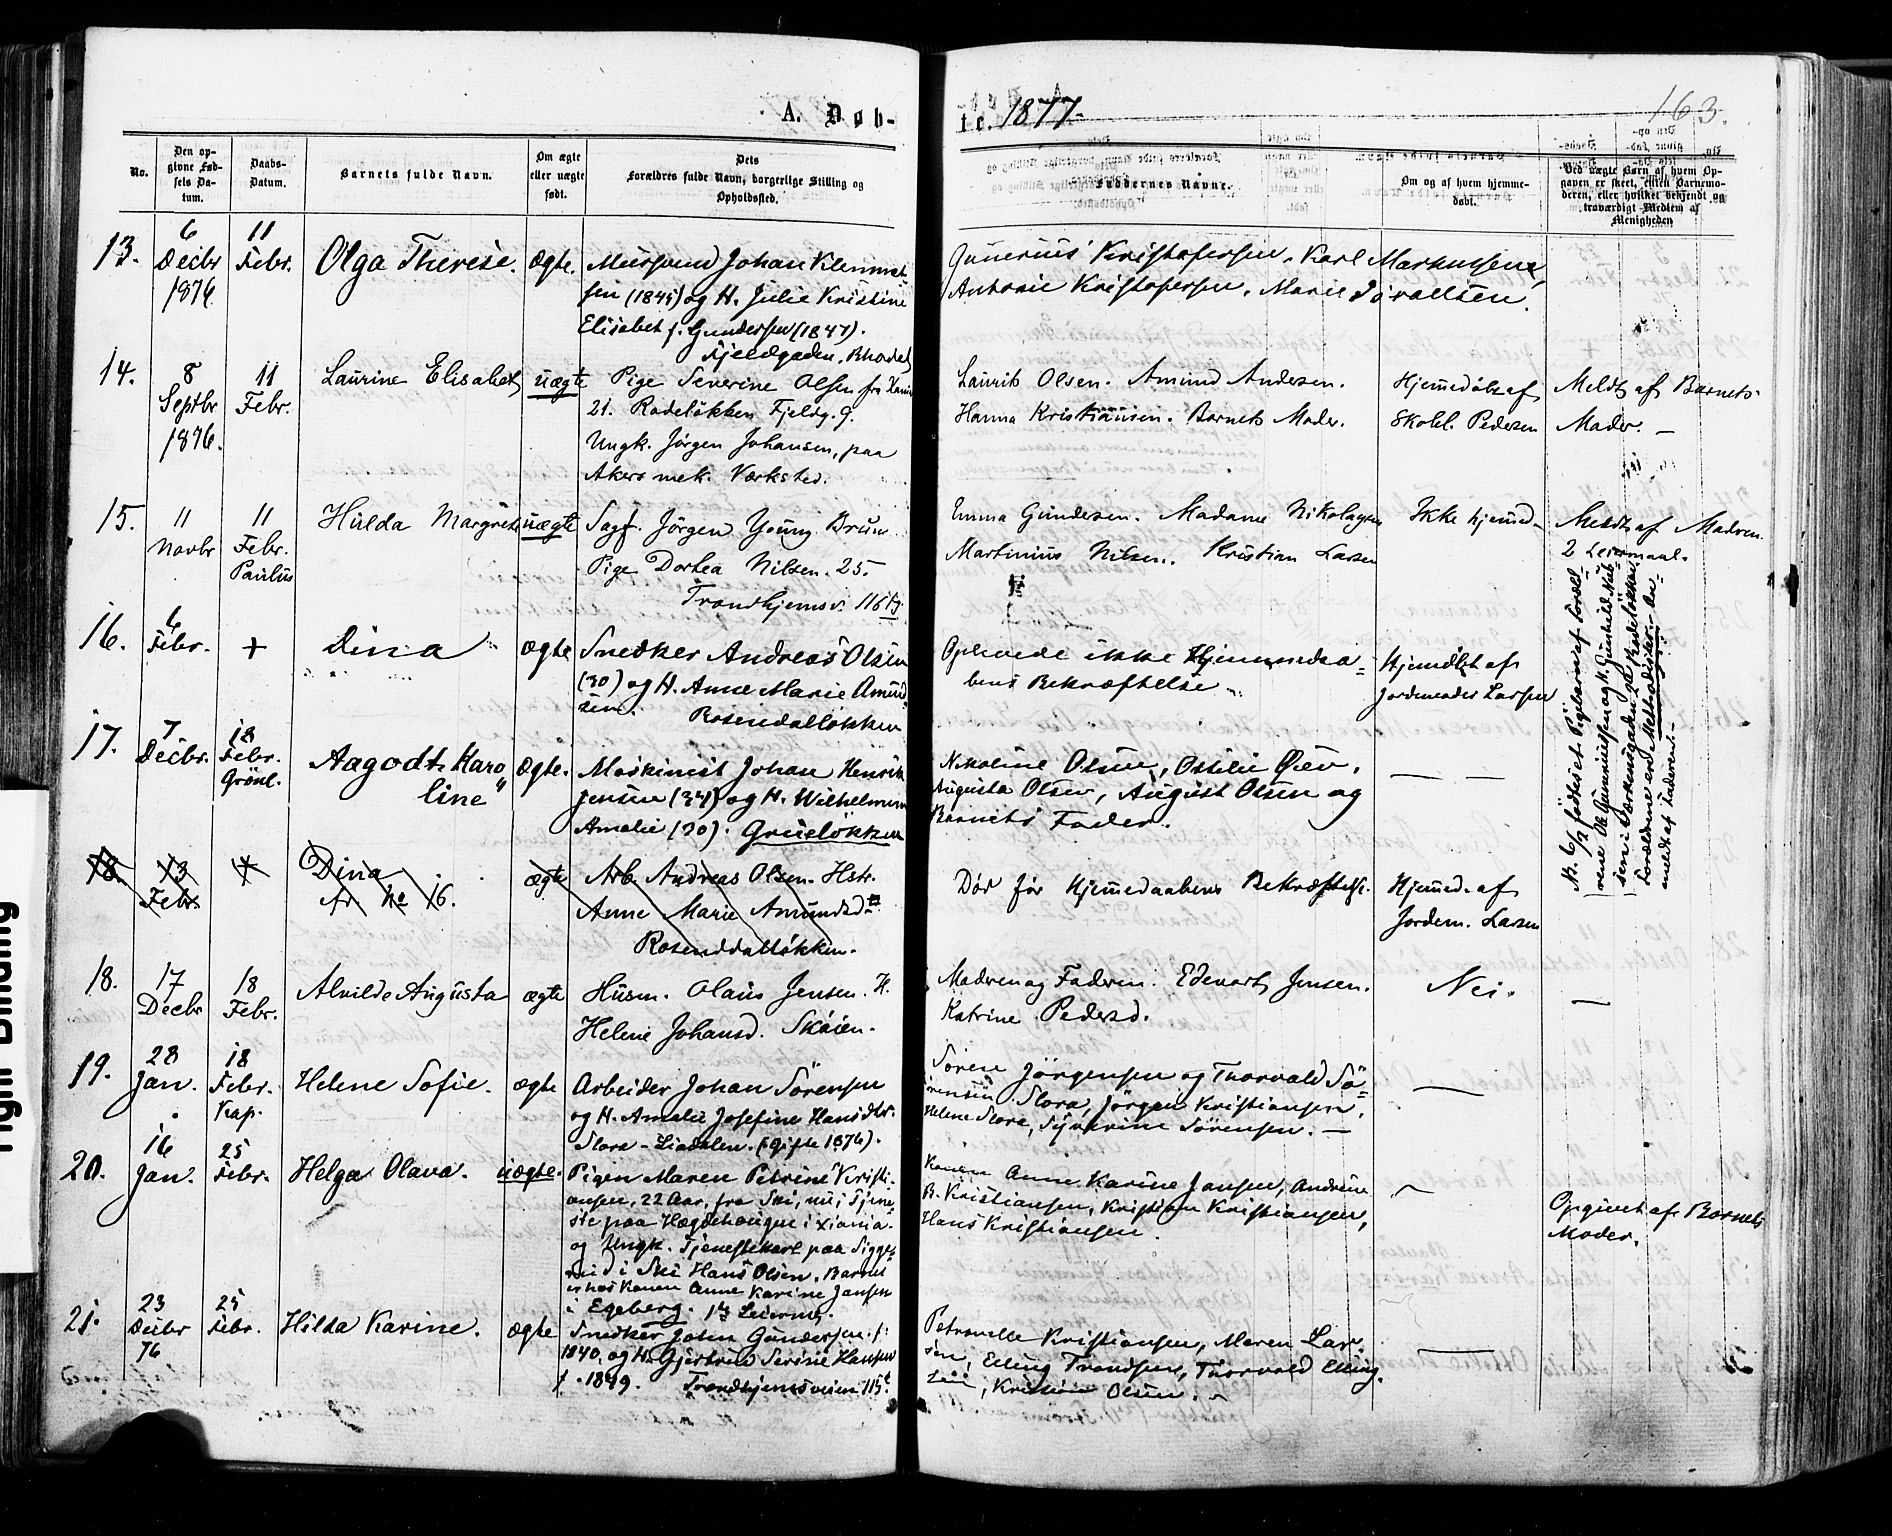 A. Døb-
te. 1877.
163.
No.
Den opgivne Fødsels Datum.
Daabs-Datum.
Barnets fulde Navn.
Om ægte eller uægte født.
Dets Forældres fulde Navn, borgerlige Stilling og Opholdssted.
Faddernes Navne.
Om og af hvem hjemmedøbt.
Ved uægte Børn af hvem Opgaven er skeet, enten Barnemoderen, eller hvilket bekjendt og troværdigt Medlem af Menigheden
13.
6 Decbr 1876.
11 Febr.
Olga Therese.
Ægte.
Johan
sen (1845) og H. Julie Kristine
Elisabet f. Gundersen (1847).
Fjeldgaden,
Gunerius Kristofersen, Karl Markussen,
Antonie Kristofersen, Marie
14.
8 Septbr 1876.
11 Febr.
Laurine Elisabet
uægte
Pige Severine Olsen fra
21. Rodeløkken Fjeldg. 9.
Ungk. Jørgen Johansen, paa
Akers mek. Værksted.
Laurits Olsen. Amund Andersen.
Hanna Kristiansen. Barnets Moder.
Hjemmedøbt af
Skolel. Pedersen
Meldt af Barnets
Moder. —
15.
11 Novbr
11 Febr. Paulus
Hulda Margrete
uægte
Sagf. Jørgen Young Bruun
Pige Dortea Nilsen. 25.
Trondhjemsv. 116
Emma Gundersen. Madame Nikolaysen
Martinius Nilsen. Kristian Larsen
Ikke hjemmed.
Meldt af Madren.
2 Leiermaal.
16.
6 Febr.
+
Dina
ægte
Snedker Andreas Olsen
(30) og H. Anne Marie Amund
sen.
Rosendalløkken
Oplevede ikke Hjemmedaa-
bens Bekræftelse
Hjemdøbt af
Jordmoder Larsen
17.
7 Decbr.
18 Febr. Grønl.
Aagodt Karo
line
ægte.
Maskinist Johan Henrik
Jensen (34) og H. Wilhelmine
Amalie (30). Grüneløkken
Nikoline Olsen, Ottilie
Augusta Olsen, August Olsen og
Barnets Fader.
— —
født Pigebarn af Foræld-
rene Ole Gunniusen og H. Gunhild
sen i Værksgaden paa Rodeløkken,
Forældrene ere Methodister. An-
meldt af Faderen.
18.
13 Febr
+
Dina
No 16.
ægte
Arb. Andreas Olsen. Hstr.
Anne Marie Amundsd
Rosenddalløkken.
Død før Hjemmedaabens Bekræftelse.
Hjemmed. af
Jordem. Larsen
18.
17 Decbr
18 Febr.
Alvilde Augusta
ægte
Husm. Olaus Jensen. H.
Helene Johansd. Skøien.
Madren og Fadren. Edevart Jensen.
Katrine Pedersd.
Nei.
—
19.
28 Jan.
18 Febr. Kap.
Helene Sofie.
ægte
Arbeider Johan Sörensen
og H. Amalie Josefine Hansdtr.
Slora - Liadalen. (gifte 1876).
Sören Jörgensen og Thorvald Sö-
rensen Slora, Jörgen Kristiansen,
Helene Slora, Syverine Sörensen. —
—
20.
16 Jan.
25 Febr.
Helga Olava.
uægte.
Pigen Maren Petrine Kristi-
ansen, 22 Aar, fra Ski, nu i Tjene-
ste paa Hægdehaugen i Xiania.
og Ungk. Tjenestekarl paa Sigge-
rud i Ski Hans Olsen. Barnet
er hos Konen Anne Karine Jansen
i Egeberg. 1ste Leierm.
Konen Anne Karine Jansen, Andrine
B. Kristiansen, Kristian Kristiansen,
Hans Kristiansen.
Opgivet af Barnets
Moder.
21.
23 Decbr 76
25 Febr.
Hilda Karine.
ægte
Snedker John Gundersen f.
1840, og H. Gjertrud Serine Hansen
f. 1849. Trondhjemsveien 115
Petronelle Kristiansen, Maren Lar-
sen, Elling Trondsen, Thorvald Elling-
sen, Kristian Olsen.
—